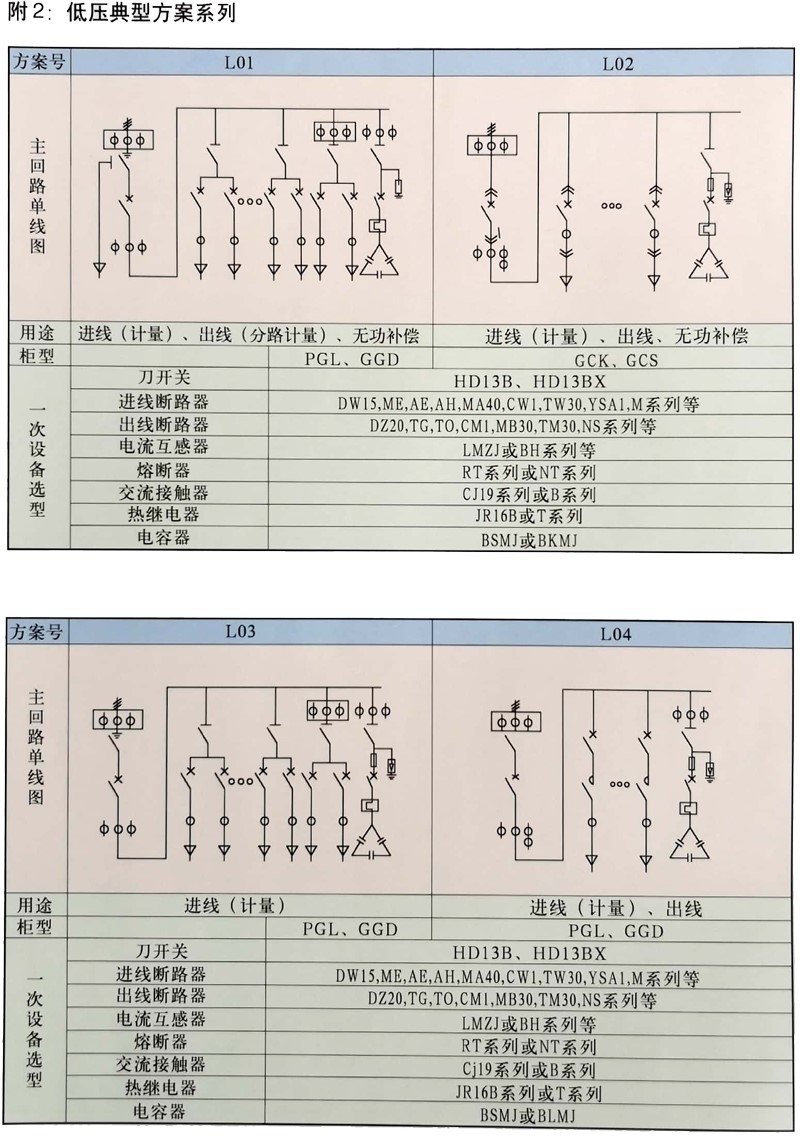 附2：低压典型方案系列
方案号 L01 L02
主回路单线图
用途 进线（计量）、出线（分路计量）、无功补偿 进线（计量）、出线、无功补偿
柜型 PGL、GGD GCK、GCS
一次设备选型
刀开关 HD13B、HD13BX
进线断路器 DW15,ME,AE,AH,MA40,CW1,TW30,YSA1,M系列等
出线断路器 DZ20,TG,TO,CM1,MB30,TM30,NS系列等
电流互感器 LMZJ或BH系列等
熔断器 RT系列或NT系列
交流接触器 CJ19系列或B系列
热继电器 JR16B或T系列
电容器 BSMJ或BKMJ
方案号 L03 L04
主回路单线图
用途 进线（计量） 进线（计量）、出线
柜型 PGL、GGD PGL、GGD
一次设备选型
刀开关 HD13B、HD13BX
进线断路器 DW15,ME,AE,AH,MA40,CW1,TW30,YSA1,M系列等
出线断路器 DZ20,TG,TO,CM1,MB30,TM30,NS系列等
电流互感器 LMZJ或BH系列等
熔断器 RT系列或NT系列
交流接触器 Cj19系列或B系列
热继电器 JR16B系列或T系列
电容器 BSMJ或BLMJ